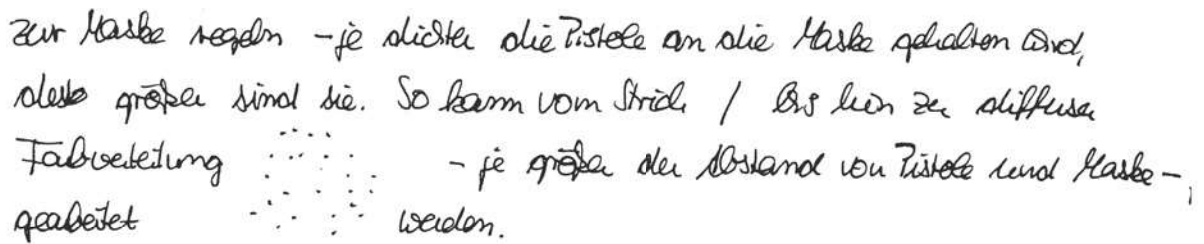 zur Maske regeln - je dichter die Pistole an die Maske gehalten wird,
desto größer sind sie. So kann vom Strich / bis hin zu diffuser
Farbverteilung - je größer der Abstand von Pistole und Maske -,
gearbeitet werden.